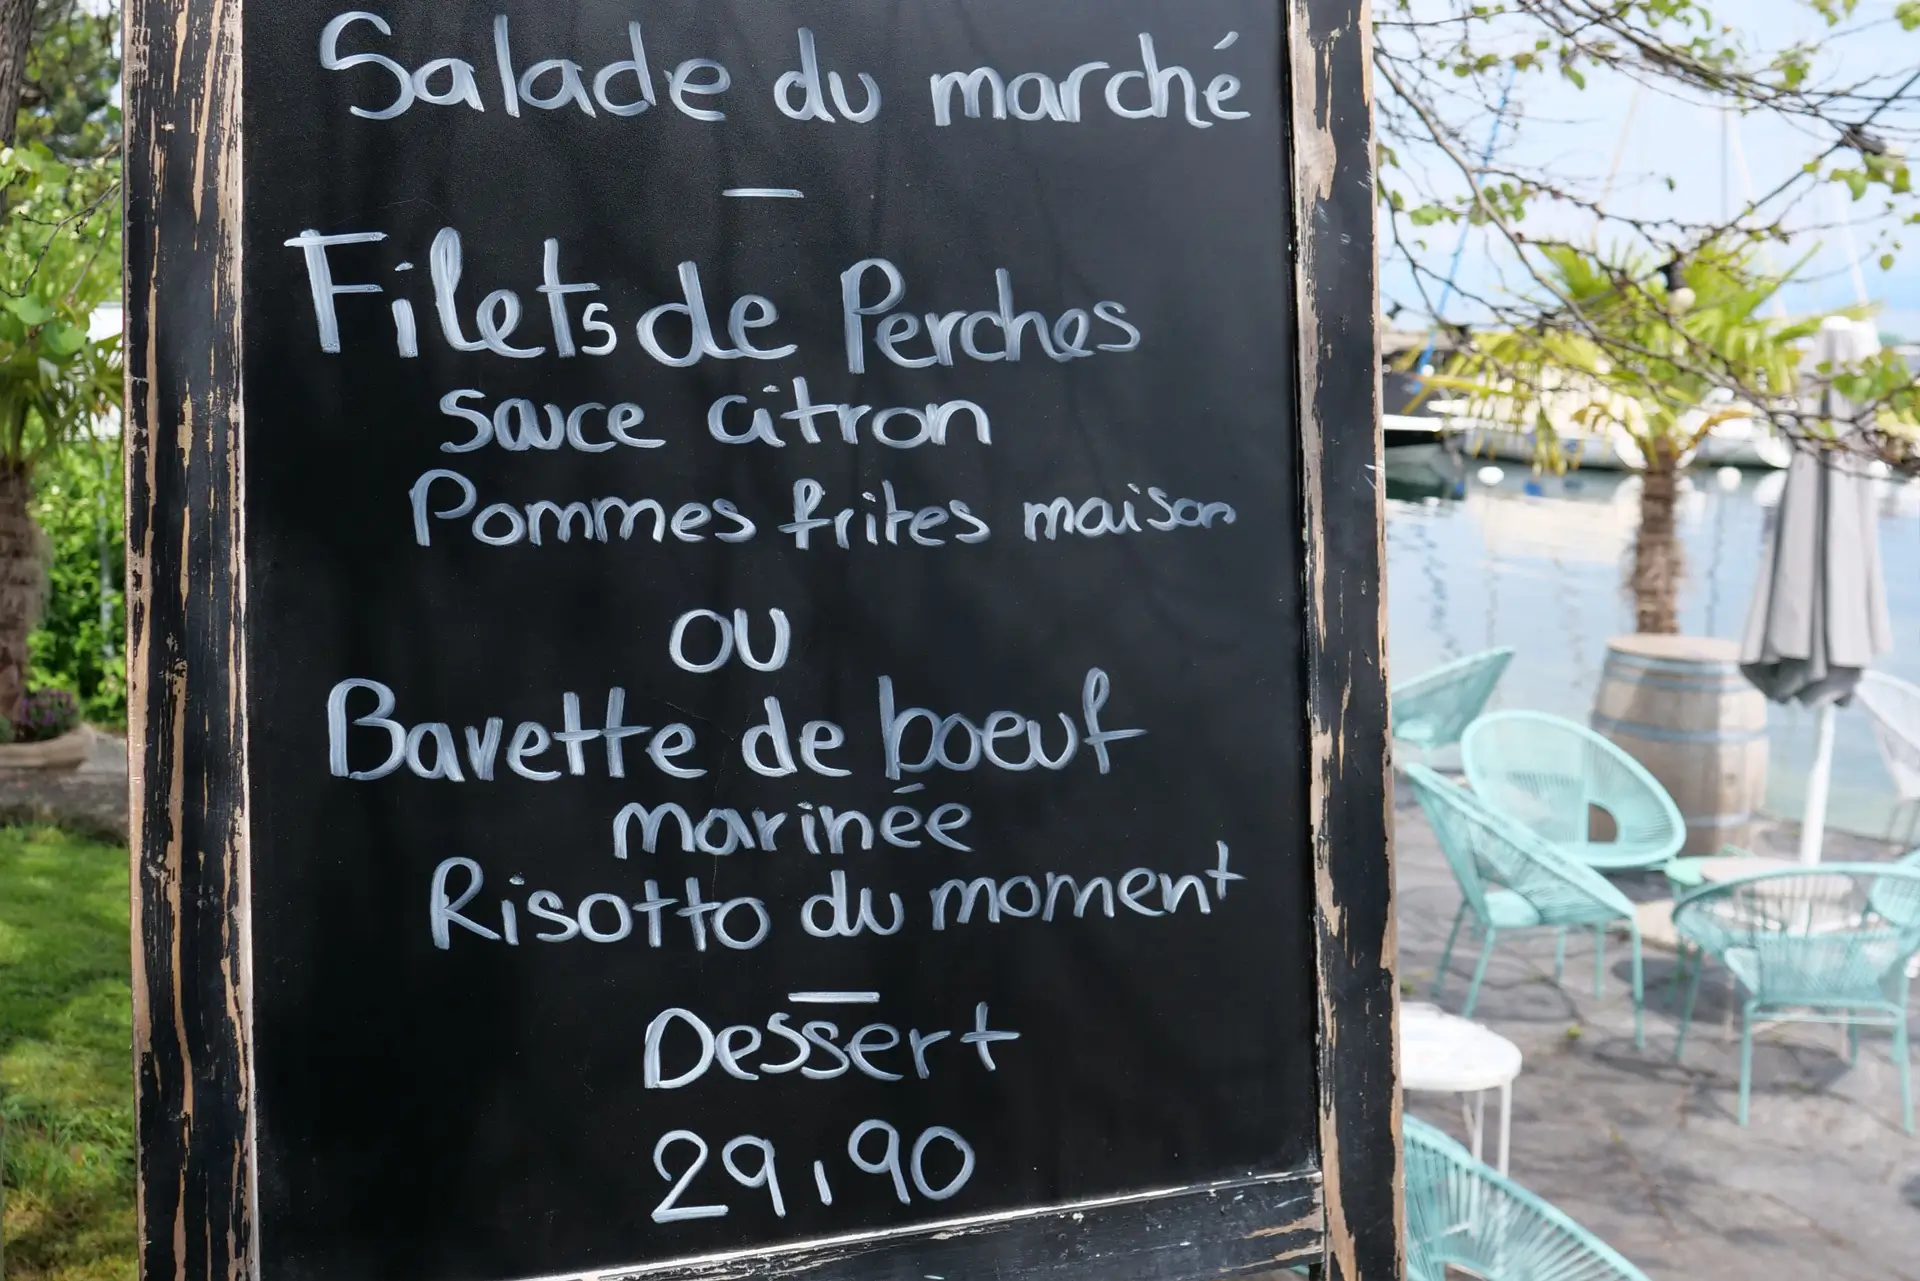 Salade du marché
Filets de Perches
sauce citron
Pommes frites maison
ou
Bavette de boeuf
marinée
Risotto du moment
Dessert
29,90